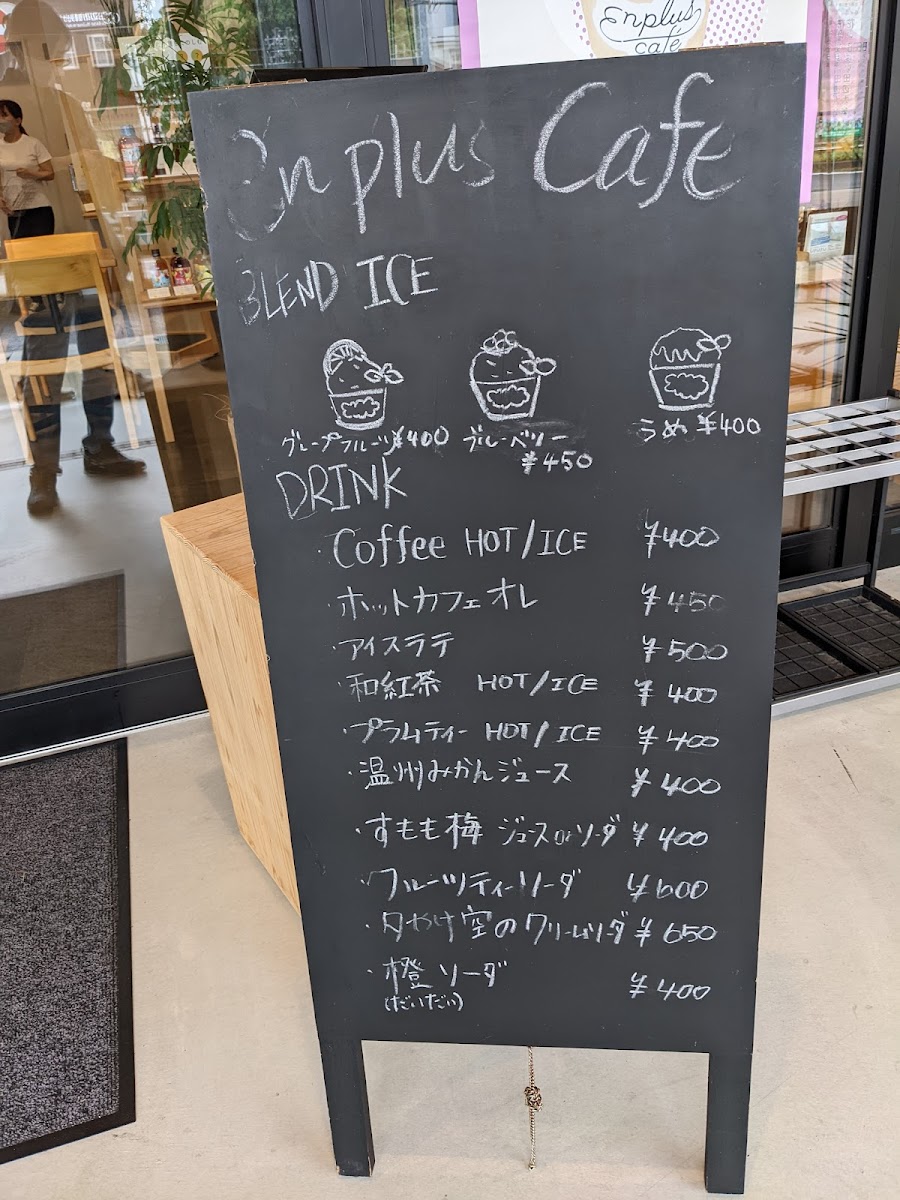 enplus
café
en plus Cafe
BLEND ICE
グレープフルーツ ¥400 ブルーベリー ¥450 うめ ¥400
DRINK
・Coffee HOT/ICE ¥400
・ホットカフェオレ ¥450
・アイスラテ ¥500
・和紅茶 HOT/ICE ¥400
・プラムティー HOT/ICE ¥400
・温州みかんジュース ¥400
・すもも梅 ジュースorソーダ ¥400
・フルーツティーソーダ ¥600
・夕やけ空のクリームソーダ ¥650
・橙ソーダ ¥400
(だいだい)